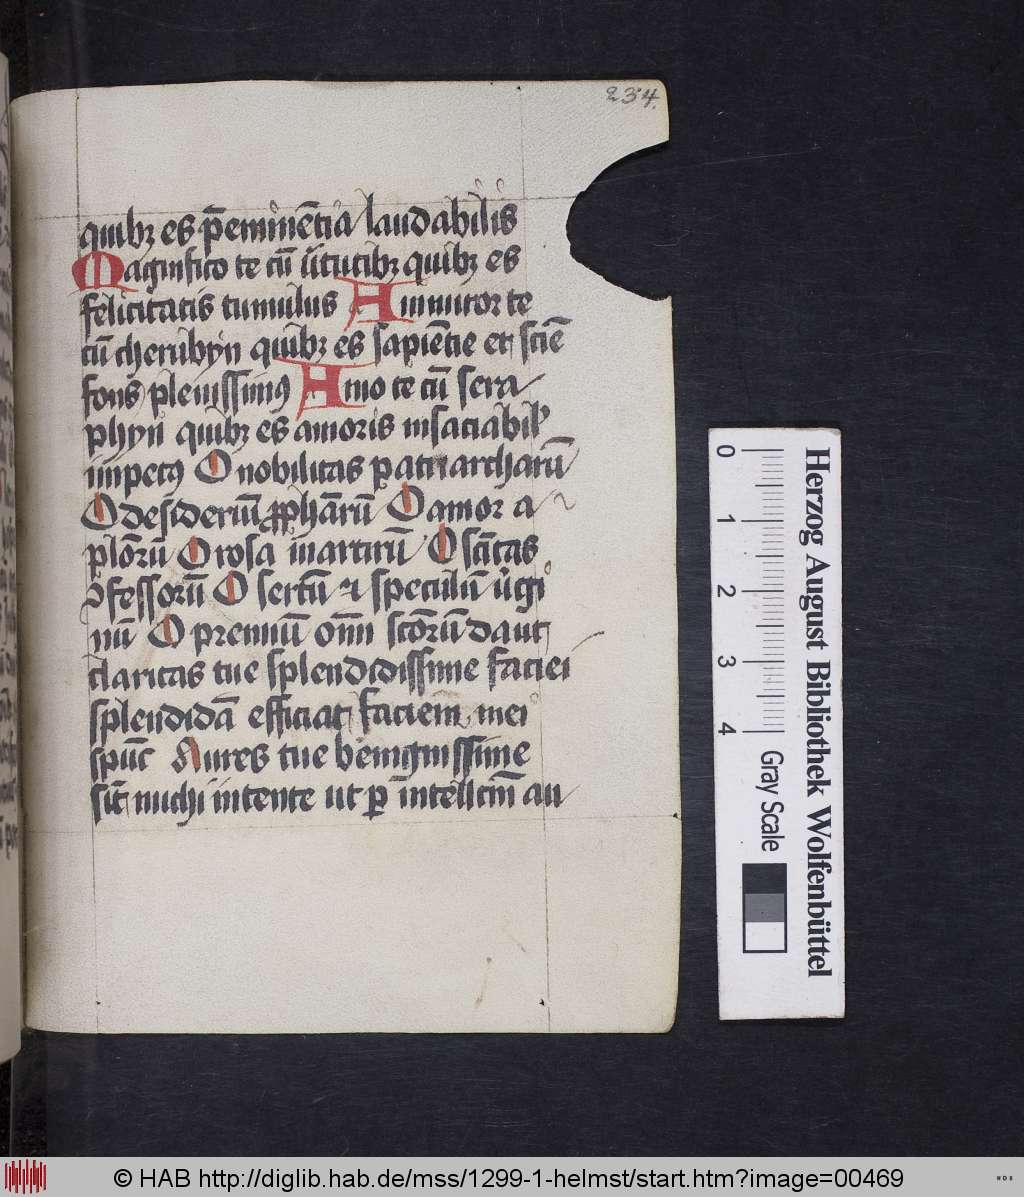 234.
quibꝫ es p̄eminētia laudabilis
Magnifico te cū v̓tutibꝫ quibꝫ es
felicitatis tumulus Ammiror te
cū cherubyn quibꝫ es sapiētie et sciē
fons plenissimꝰ Amo te cū sera
phyn quibꝫ es amoris insaciabilꝭ
impetꝰ O nobilitas patriarcharū
O desideriū ꝓphārū O amor a
plōrū O rosa martirū O scītas
ꝯfessorū O sertū ⁊ speculū v̓gi
nū O premiū om̄ scōrū da ut
claritas tue splendidissime faciei
splendidā efficiat faciem mei
sp̄uc Aures tue benignissime
sīt michi intente ut p̄ intellcm̄ au
Herzog August Bibliothek Wolfenbüttel
0 1 2 3 4 Gray Scale
© HAB http://diglib.hab.de/mss/1299-1-helmst/start.htm?image=00469